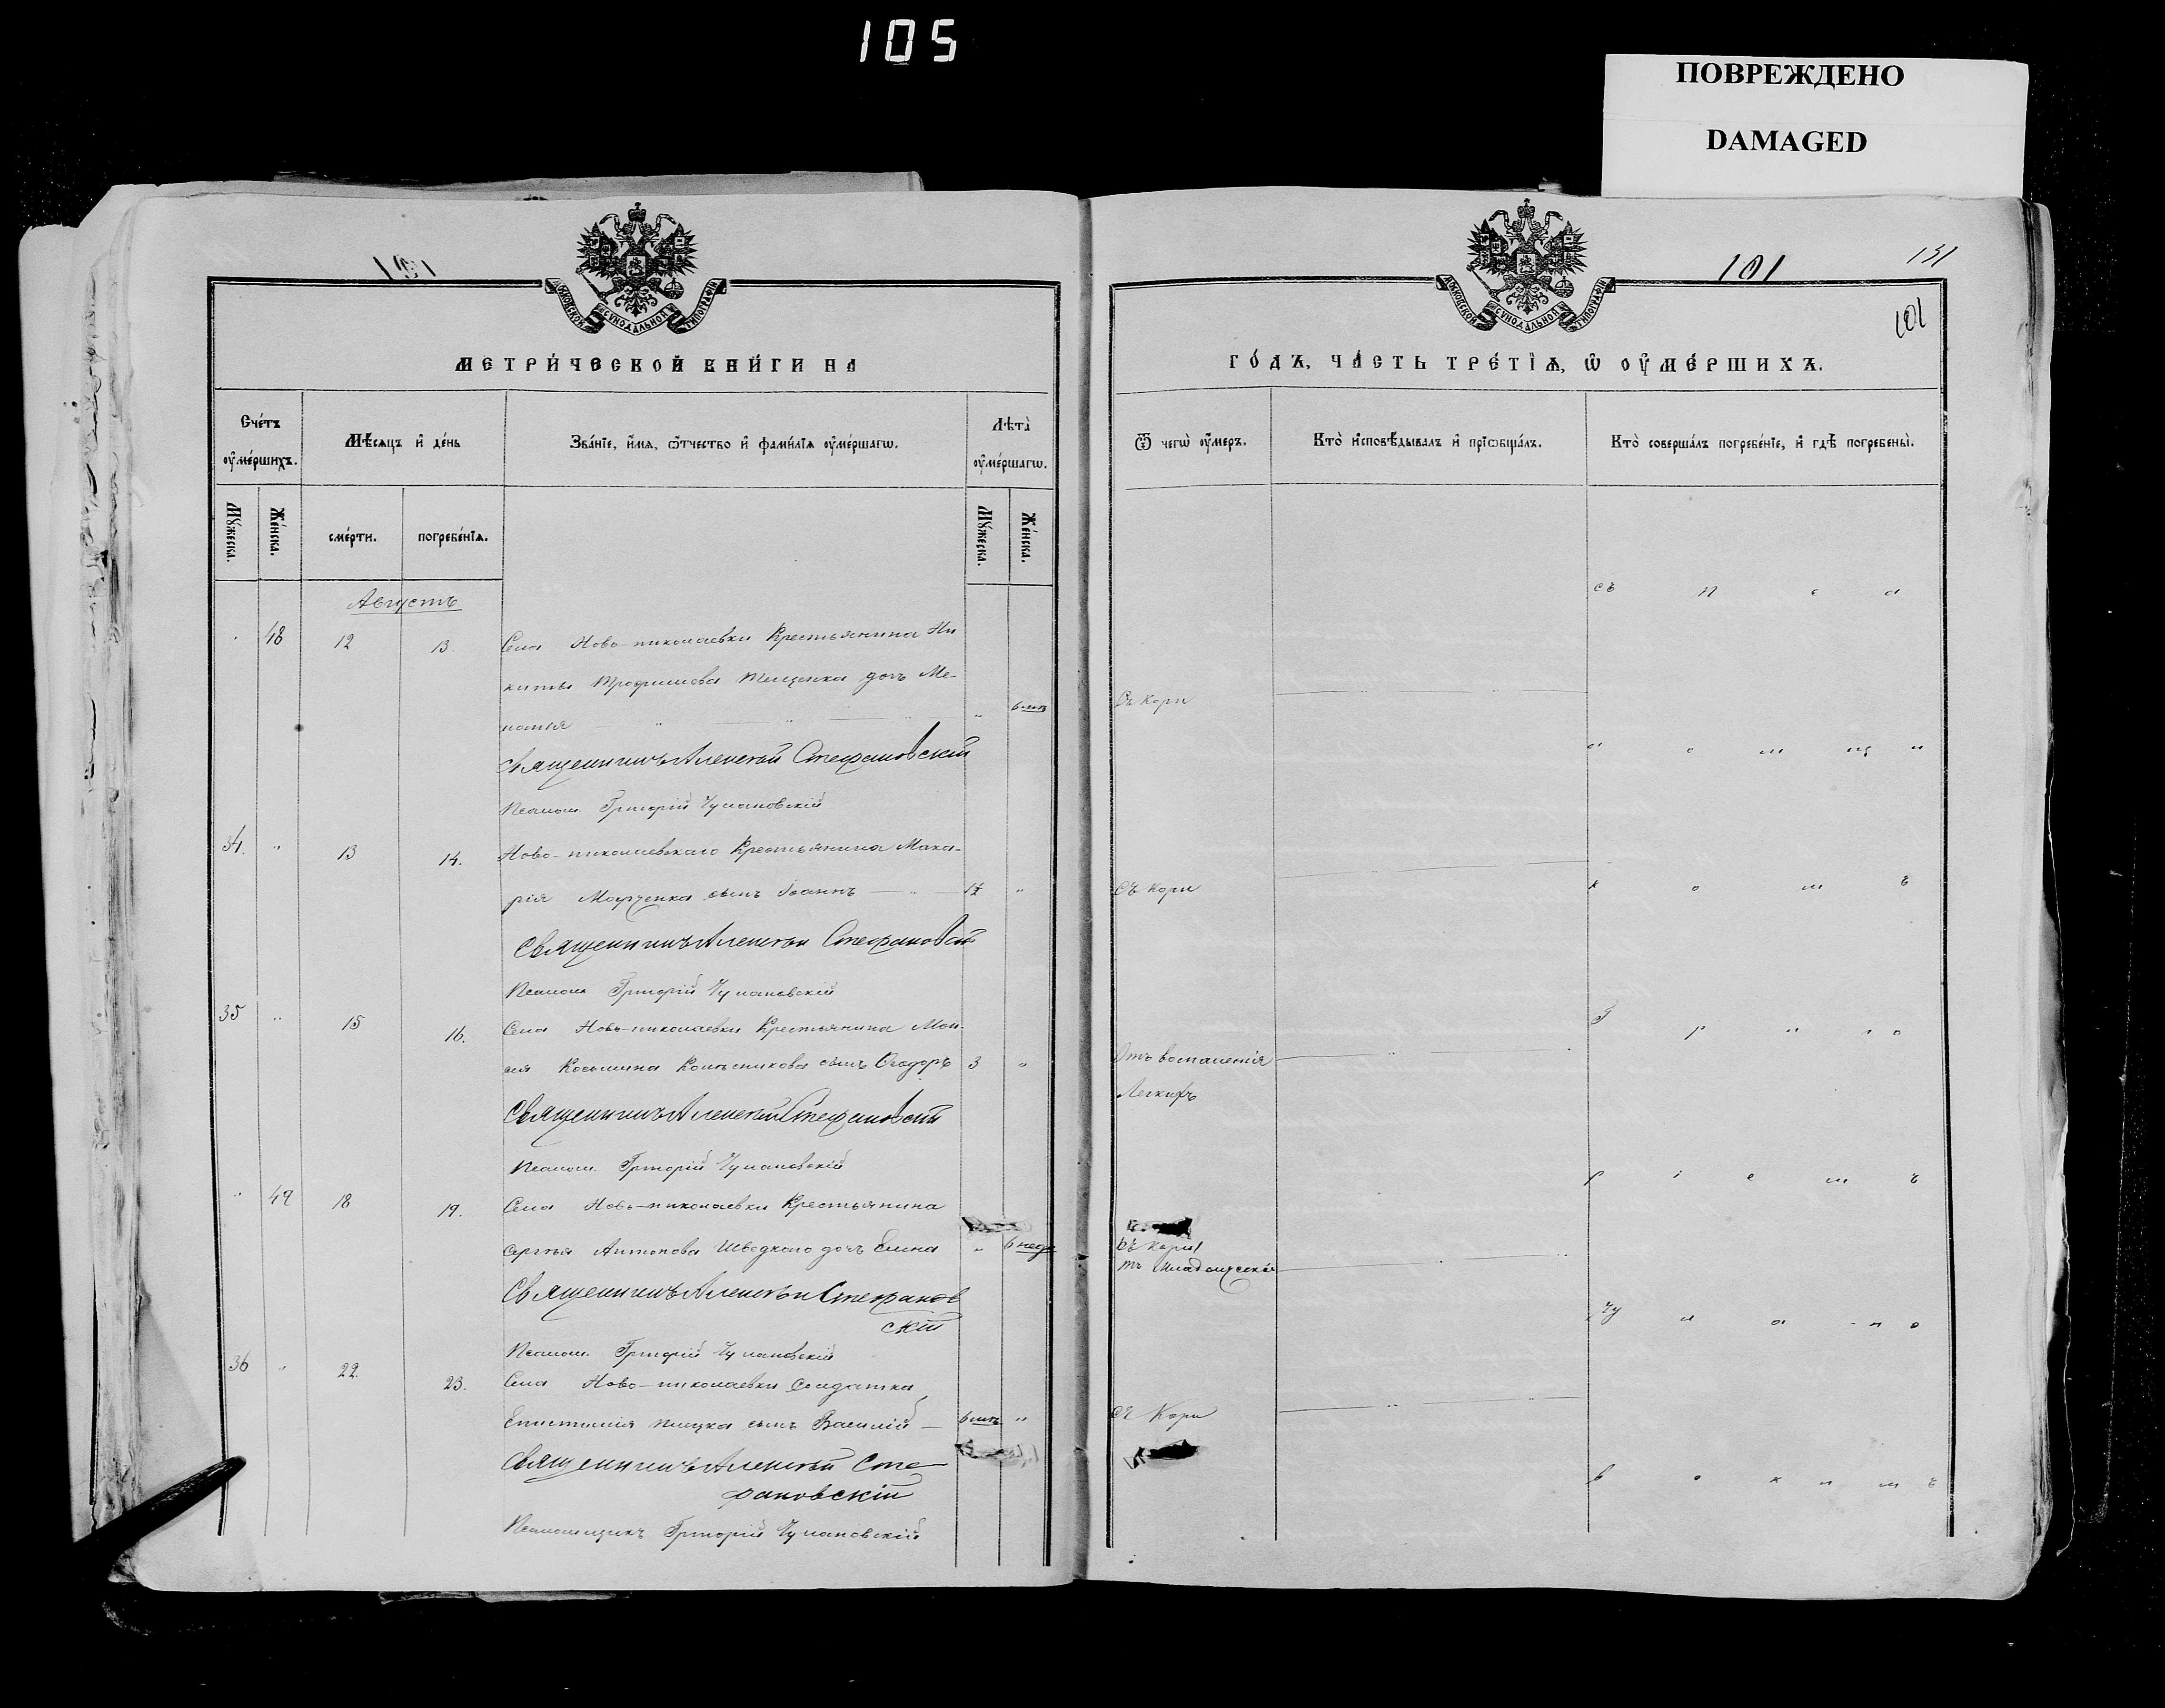 105
ПОВРЕЖДЕНО
DAMAGED
101
МОСКОВСКОЙ СѴНОДАЛЬНОЙ ТИПОГРАФІИ
МЕТРИ́ЧЕСКОЙ КНИ́ГИ НА
Сче́тъ оумéршихъ.
Мѣ́сяцъ и де́нь
Зва́нїе, и́мя, ѿтчество и фамѝлїя оумéршагѡ.
Лѣта̀ оумéршагѡ.
Мꙋ́жеска.
Же́нска.
сме́рти.
погребе́нїя.
Мꙋ́жеска.
Же́нска.
Августъ
48 12 13. Села Ново-николаевки Крестьянина Ни
киты Трофимова дочь Ме-
ланія " " " " 6 мѣ
Священникъ Алексѣй Стефановскій
Псалом. Григорій Чумановскій
34. " 13 14. Ново-николаевскаго Крестьянина Мака-
рія Марченка сынъ Іоаннъ — " — "
Священникъ Алексѣй Стефановскій
Псалом Григорій Чумановскій
35 " 15 16. Села Ново-николаевки Крестьянина Мои
сея Косьмина Колѣсникова сынъ Ѳеодоръ 3 "
Священникъ Алексѣй Стефановскій
Псалом. Григорій Чумановскій
" 49 18 19. Села Ново-николаевки Крестьянина
Сергѣя Антонова Шведкаго дочь Елена " 6 нед.
Священникъ Алексѣй Стефанов
скій
Псалом. Григорій Чумановскій
36 " 22. 23. Села Ново-николаевки Солдатка
сынъ Василій — 6 мѣ. "
Священникъ Алексѣй Сте
фановскій
Псаломщикъ Григорій Чумановскій
101
131
101
МОСКОВСКОЙ СѴНОДАЛЬНОЙ ТИПОГРАФІИ
ГО́ДЪ, ЧА́СТЬ ТРЕ́ТЇЯ, Ѡ ОУМЕ́РШИХЪ.
Ѿ чегѡ̀ оу́меръ.
Кто̀ исповѣ́дывалъ и прїѡбща́лъ.
Кто̀ соверша́лъ погребе́нїе, и гдѣ̀ погребены̀.
съ п с а
Съ кори
л о м щ и
Съ кори
к о м ъ
Г р и г о
Отъ воспаленія
Легкихъ
р і е м ъ
Съ кори
тъ Младенческой
Чу м а н о
Съ Кори
в с к и м ъ